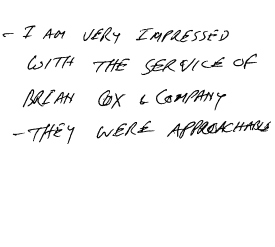 - I AM VERY IMPRESSED
WITH THE SERVICE OF
BRIAN COX & COMPANY
- THEY WERE APPROACHABLE